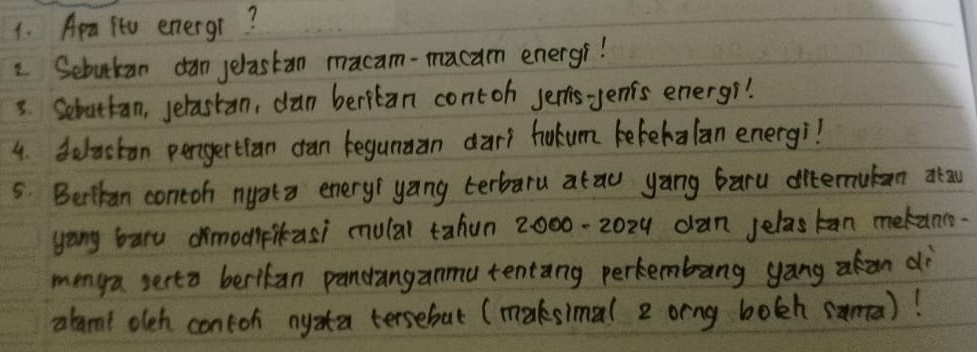 1. Apa itu energi ?
2. Sebutkan dan jelaskan macam-macam energi!
3. Sebutkan, jelaskan, dan berikan contoh jenis-jenis energi!
4. Jelaskan pengertian dan kegunaan dari hukum kekekalan energi!
5. Berikan contoh nyata energi yang terbaru atau yang baru ditemukan atau
yang baru dimodifikasi mulai tahun 2000-2024 dan jelaskan mekanis-
menya serta berikan pandanganmu tentang perkembang yang akan di
alami oleh contoh nyata tersebut (maksimal 2 orng boleh sama)!